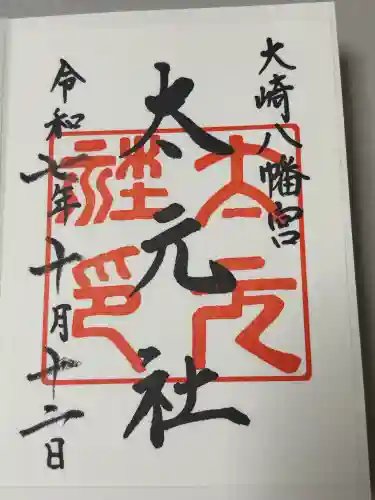 大崎八幡宮
太元社
太元社印
令和七年十月十二日